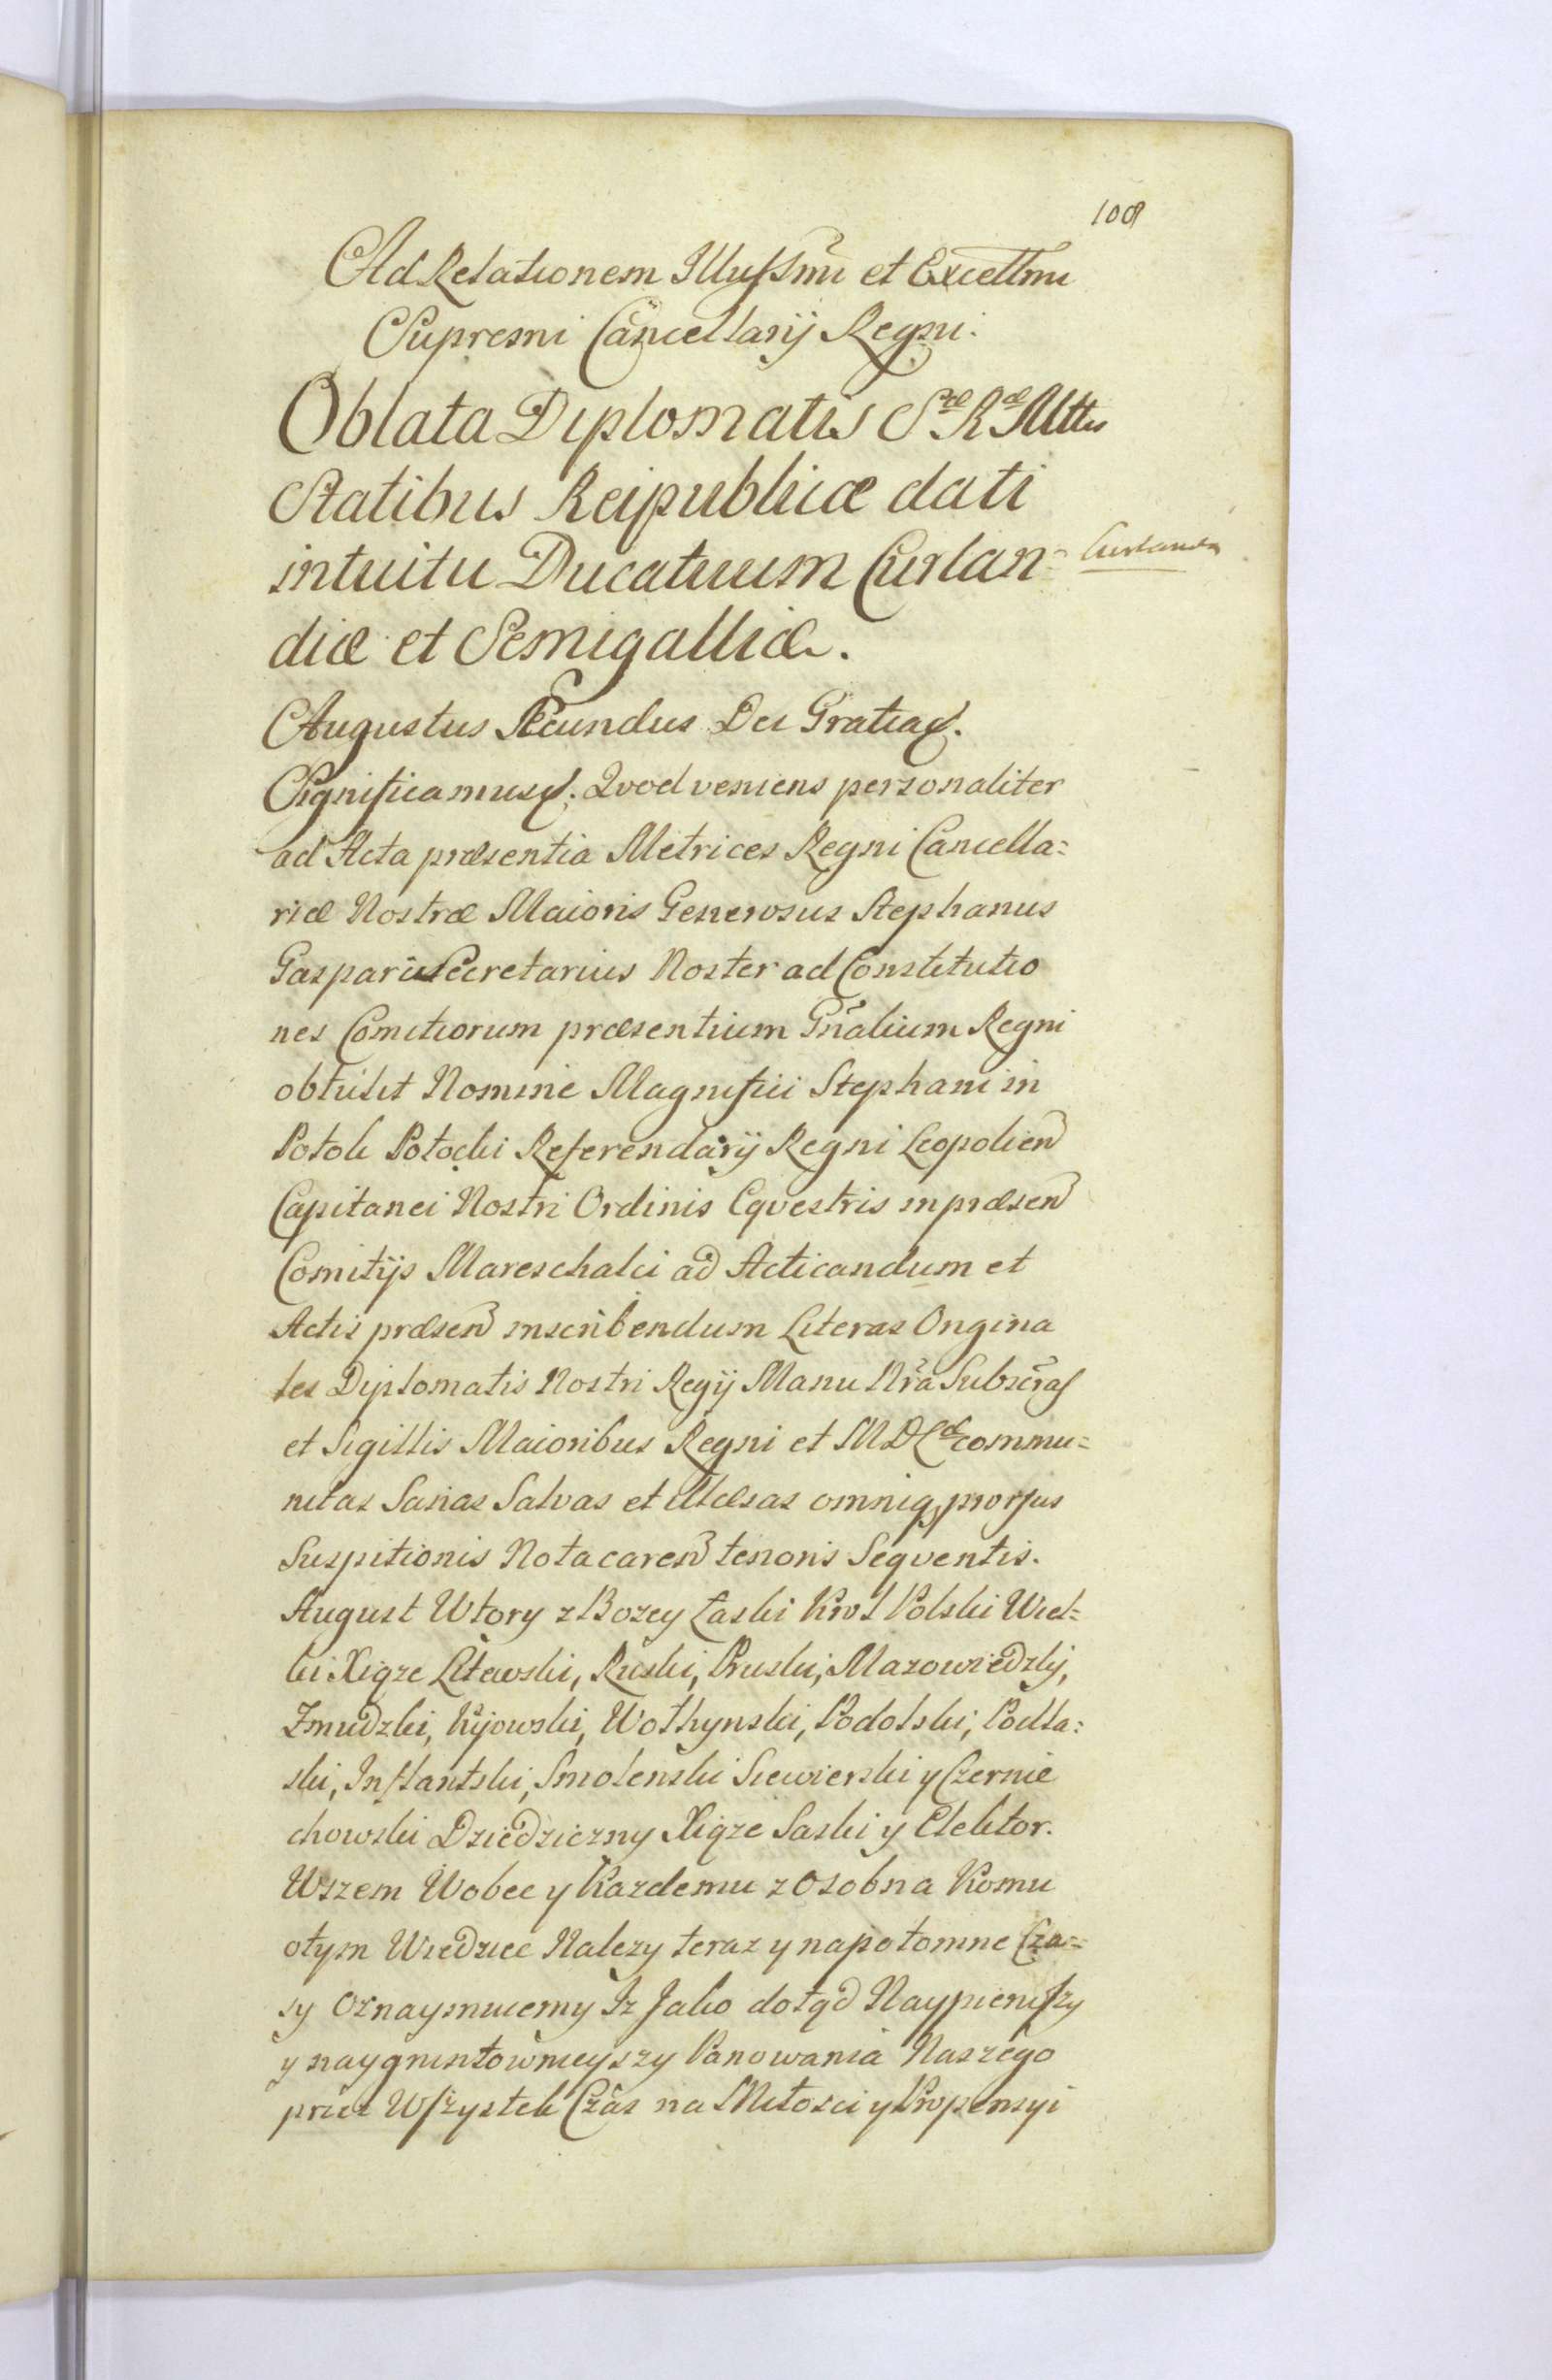 108
Ad Relationem Illussmi et Excellmi
Supremi Cancellarij Regni.
Oblata Diplomatis Sae Rae Mttis
Statibus Reipublicæ dati
intuitu Ducatuum Curlan=
Curlandia
diæ et Semigalliæ.
Augustus Secundus Dei Gratia &.
Significamus &. Qvod veniens personaliter
ad Acta præsentia Metrices Regni Cancella=
riæ Nostræ Maioris Generosus Stephanus
Gasparis Secretarius Noster ad Constitutio
nes Comitiorum præsentium Gñalium Regni
obtulit Nomine Magnifici Stephani in
Potok Potocki Referendarij Regni Leopolien
Capitanei Nostri Ordinis Eqvestris in præsen
Comitijs Mareschalci ad Acticandum et
Actis præsen inscribendum Literas Origina
les Diplomatis Nostri Regij Manu Nra Subscras
et Sigillis Maioribus Regni et M D L commu=
nitas Sanas Salvas et illæsas omniq prorsus
Suspitionis Nota caren tenoris Seqventis.
August Wtory z Bozey Łaski Krol Polski Wiel=
ki Xiąze Litewski, Ruski, Pruski, Mazowiedzki,
Zmudzki, Kijowski, Wołhynski, Podolski, Podla=
ski, Inflantski, Smolenski Siewierski y Czernie
chowski Dziedziczny Xiąze Saski y Elektor.
Wszem Wobec y Kazdemu z Osobna Komu
otym Wiedziec Nalezy teraz y napotomne Cza=
sy Oznaymuiemy Iz Jako dotąd Naypierwszy
y naygruntownieyszy Panowania Naszego
przez Wszystek Czas na Miłosci y Propensyi